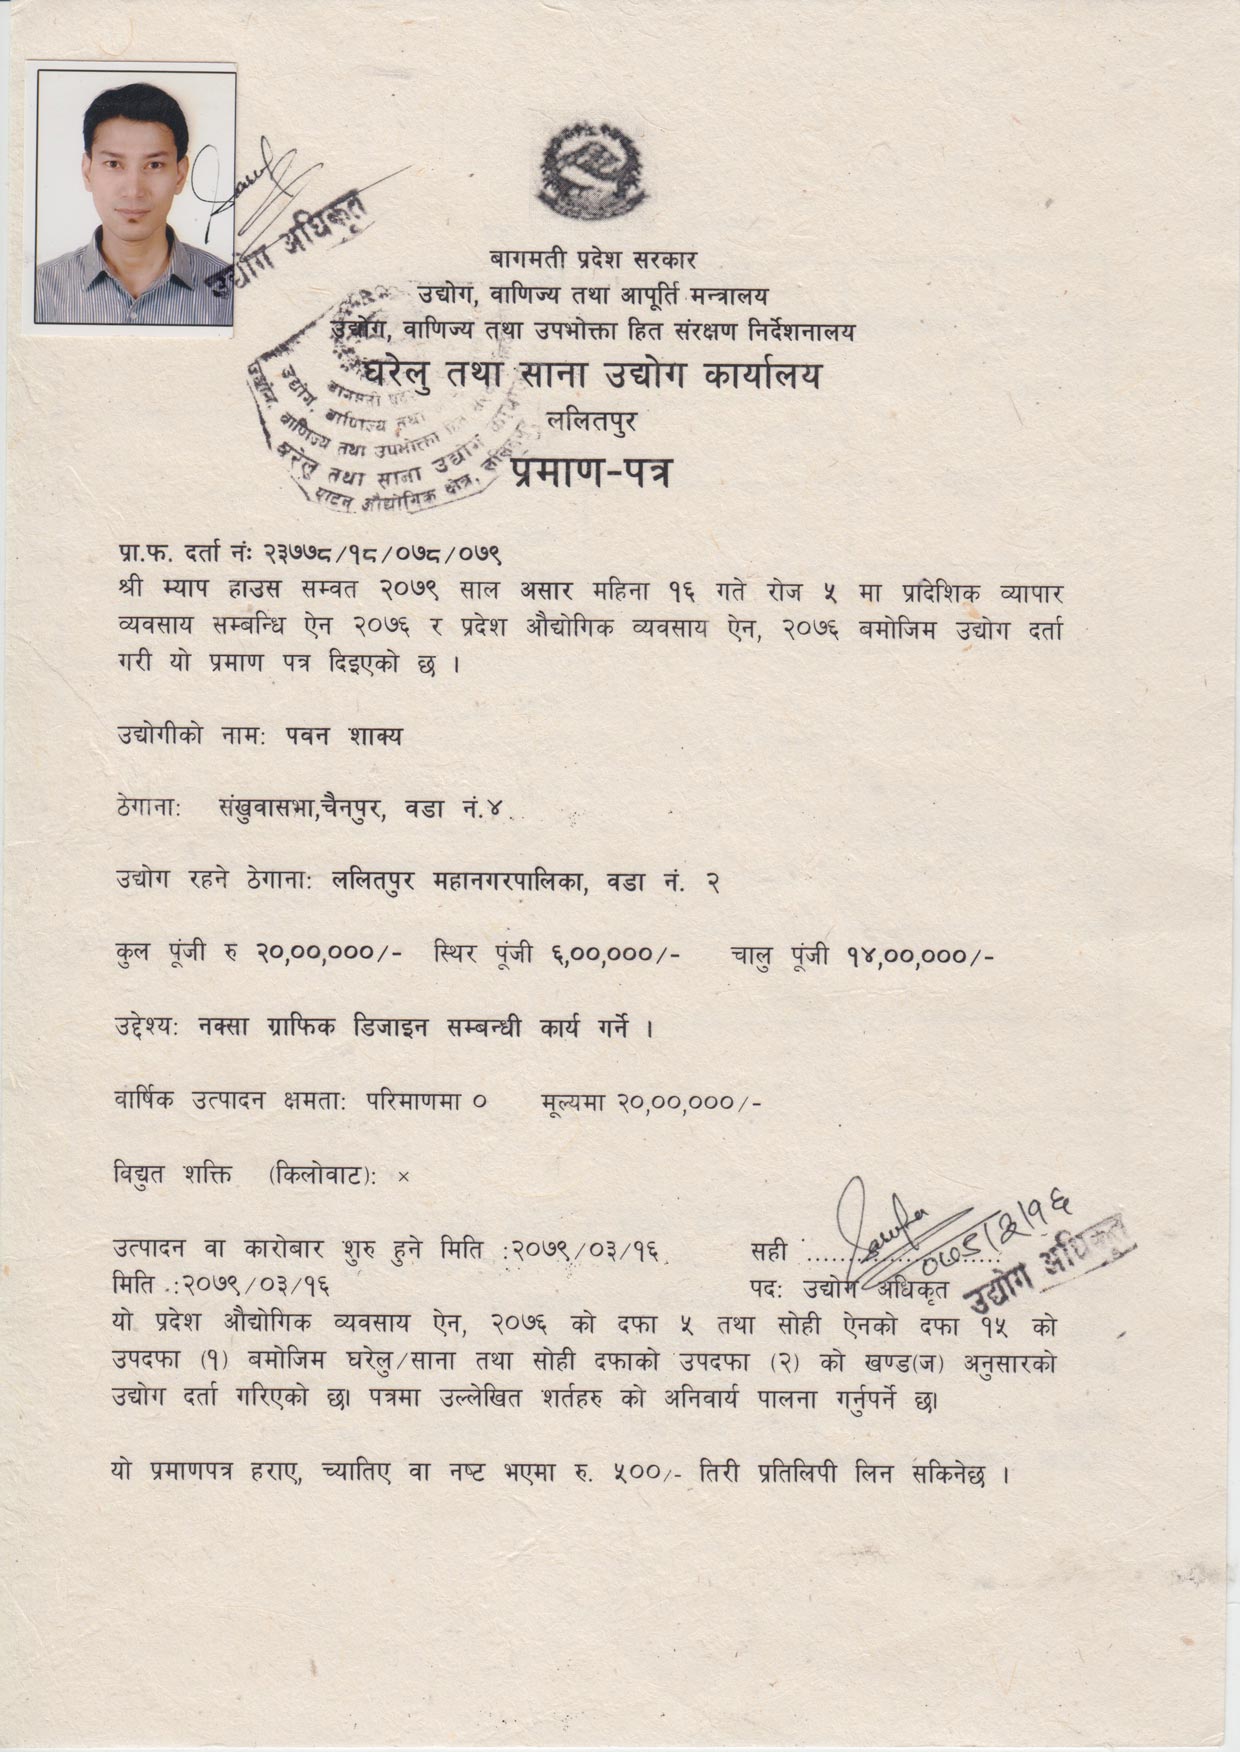 बागमती प्रदेश सरकार
उद्योग, वाणिज्य तथा आपूर्ति मन्त्रालय
उद्योग, वाणिज्य तथा उपभोक्ता हित संरक्षण निर्देशनालय
घरेलु तथा साना उद्योग कार्यालय
ललितपुर
प्रमाण-पत्र
उद्योग अधिकृत
उद्योग, वाणिज्य तथा
उद्योग, वाणिज्य तथा उपभोक्ता हित
घरेलु तथा साना उद्योग
पाटन औद्योगिक क्षेत्र,
प्रा.फ. दर्ता नंः २३७७८/१८/०७८/०७९
श्री म्याप हाउस सम्वत २०७९ साल असार महिना १६ गते रोज ५ मा प्रादेशिक व्यापार
व्यवसाय सम्बन्धि ऐन २०७६ र प्रदेश औद्योगिक व्यवसाय ऐन, २०७६ बमोजिम उद्योग दर्ता
गरी यो प्रमाण पत्र दिइएको छ ।
उद्योगीको नाम: पवन शाक्य
ठेगाना: संखुवासभा,चैनपुर, वडा नं.४
उद्योग रहने ठेगाना: ललितपुर महानगरपालिका, वडा नं. २
कुल पूंजी रु २०,००,०००/- स्थिर पूंजी ६,००,०००/- चालु पूंजी १४,००,०००/-
उद्देश्य: नक्सा ग्राफिक डिजाइन सम्बन्धी कार्य गर्ने ।
वार्षिक उत्पादन क्षमता: परिमाणमा ० मूल्यमा २०,००,०००/-
विद्युत शक्ति (किलोवाट): ×
उत्पादन वा कारोबार शुरु हुने मिति :२०७९/०३/१६ सही ....................
मिति :२०७९/०३/१६ पद: उद्योग अधिकृत
उद्योग अधिकृत
यो प्रदेश औद्योगिक व्यवसाय ऐन, २०७६ को दफा ५ तथा सोही ऐनको दफा १५ को
उपदफा (१) बमोजिम घरेलु/साना तथा सोही दफाको उपदफा (२) को खण्ड(ज) अनुसारको
उद्योग दर्ता गरिएको छ। पत्रमा उल्लेखित शर्तहरु को अनिवार्य पालना गर्नुपर्ने छ।
यो प्रमाणपत्र हराए, च्यातिए वा नष्ट भएमा रु. ५००/- तिरी प्रतिलिपी लिन सकिनेछ ।